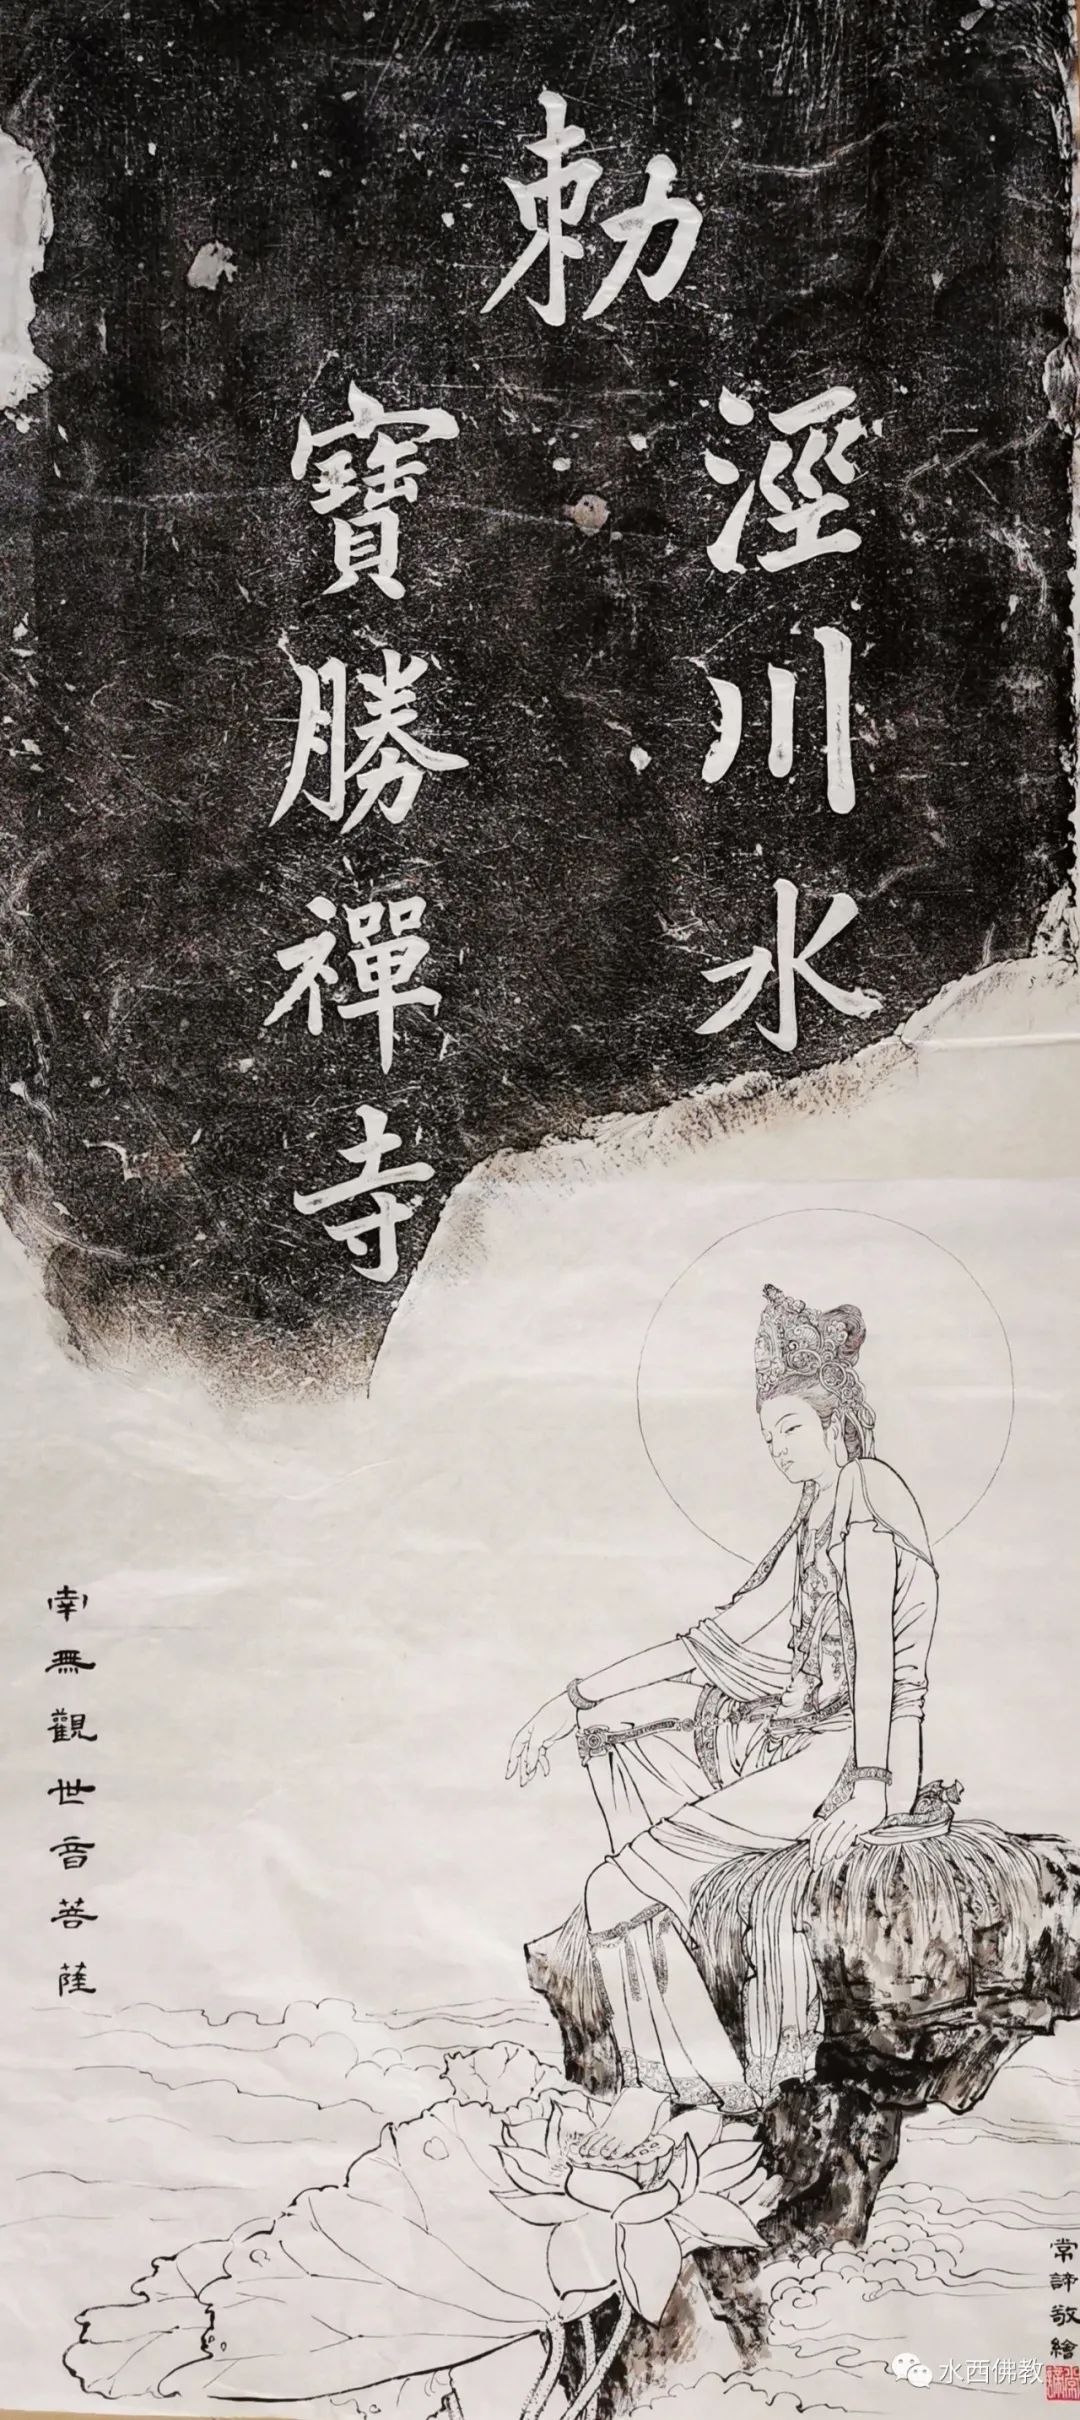 勅
涇川水
寶勝禪寺
南無觀世音菩薩
常諦敬繪
水西佛教